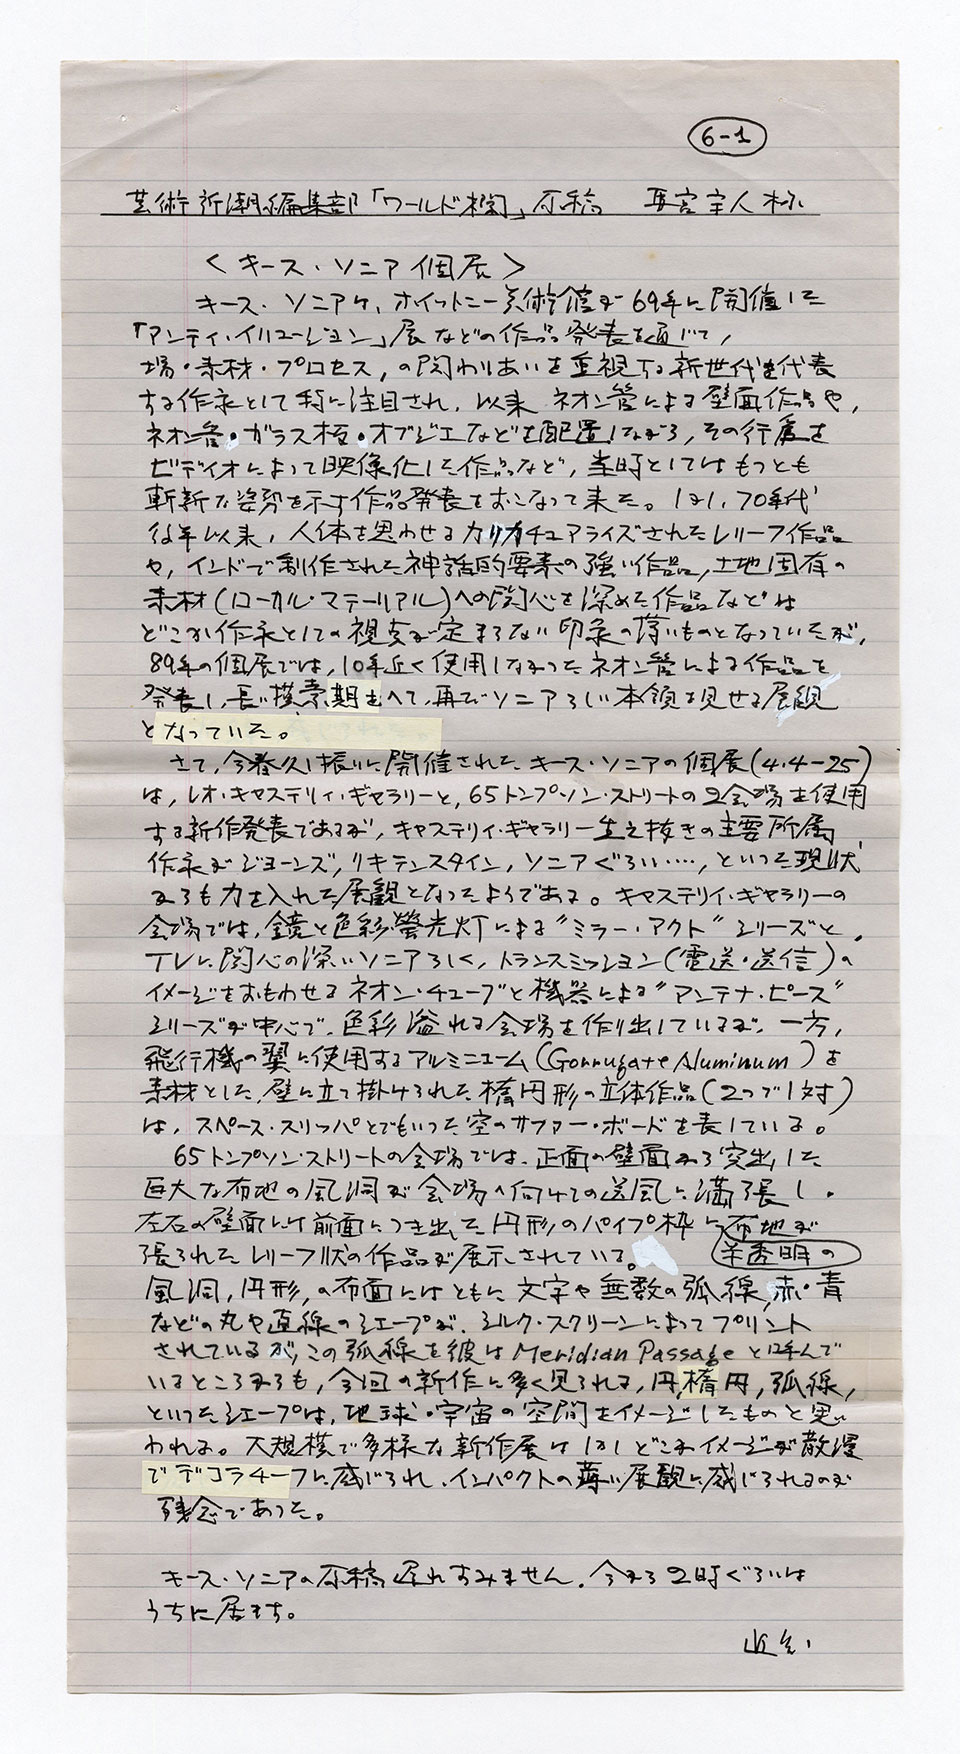 6-1
芸術新潮編集部「ワールド欄」原稿 様
〈キース・ソニア個展〉
キース・ソニアは、ホイットニー美術館が69年に開催した
「アンティ・イリュージョン」展などの作品発表を通じて、
場・素材・プロセス，の関わりあいを重視する新世代を代表
する作家として特に注目され、以来 ネオン管による壁面作品や、
ネオン管・ガラス板・オブジェなどを配置しながら，その行為を
ビディオによって映像化した作品など，当時としてはもっとも
斬新な姿勢を示す作品発表をおこなって来た。しかし，70年代
後年以来，人体を思わせるカリカチュアライズされたレリーフ作品
や，インドで制作された神話的要素の強い作品，土地固有の
素材(ローカル・マテーリアル)への関心を深めた作品などは
どこか作家としての視点が定まらない印象の薄いものとなっていたが，
89年の個展では，10年近く使用しなかったネオン管による作品を
発表し，長い模索期をへて，再びソニアらしい本領を見せる展観
となっていた。
さて，今春久し振りに開催されたキース・ソニアの個展(4.4-25)
は，レオ・キャステリィ・ギャラリーと，65トンプソン・ストリートの2会場を使用
する新作発表であるが，キャステリィ・ギャラリー生え抜きの主要所属
作家がジョーンズ，リキテンスタイン，ソニアぐらい・・・・，といった現状
からも力を入れた展観となったようである。キャステリィ・ギャラリーの
会場では，鏡と色彩螢光灯による"ミラー・アクト"シリーズと，
TVに関心の深いソニアらしく，トランスミッション(電送・送信)の
イメージをおもわせるネオン・チューブと機器による"アンテナ・ピース"
シリーズが中心で，色彩溢れる会場を作り出しているが，一方，
飛行機の翼に使用するアルミニューム(Gorrugate Aluminum)を
素材とした，壁に立て掛けられた楕円形の立体作品(2つで1対)
は，スペース・スリッパとでもいった空のサファー・ボードを表している。
65トンプソン・ストリートの会場では，正面の壁面から突出した
巨大な布地の風洞が会場へ向けての送風に満張し，
左右の壁面には前面につき出た円形のパイプ枠に布地が
張られたレリーフ状の作品が展示されている。 半透明の
風洞，円形，の布面にはともに文字や無数の弧線，赤・青
などの丸や直線のシェープが，シルク・スクリーンによってプリント
されているが，この弧線を彼はMeridian Passageと呼んで
いるところからも，今回の新作に多く見られる，円，楕円，弧線，
といったシェープは，地球・宇宙の空間をイメージしたものと思い
われる。大規模で多様な新作展はしかしどこかイメージが散漫
でデコラチーフに感じられ，インパクトの薄い展観に感じられるのが
残念であった。
キース・ソニアの原稿遅れすみません。今から2時ぐらいは
うちに居ます。